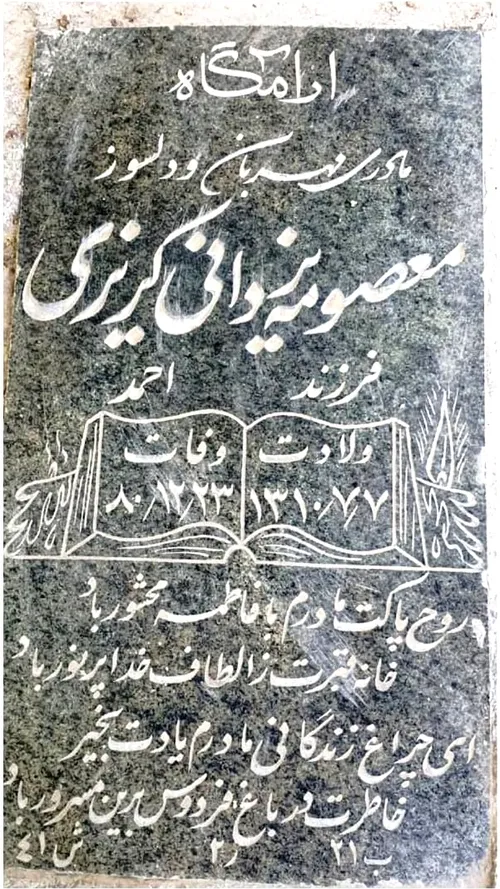 آرامگاه
مادری مهربان و دلسوز
معصومه یزدانی کریزی
فرزند احمد
ولادت وفات
۱۳۱۰/۷/۷ ۸۰/۱۲/۲۳
روح پاکت مادرم با فاطمه محشور باد
خانه قبرت ز الطاف خدا پر نور باد
ای چراغ زندگانی مادرم یادت بخیر
خاطرت در باغ فردوس برین مسرور باد
ب ۲۱ ر ۲ ش ۴۱